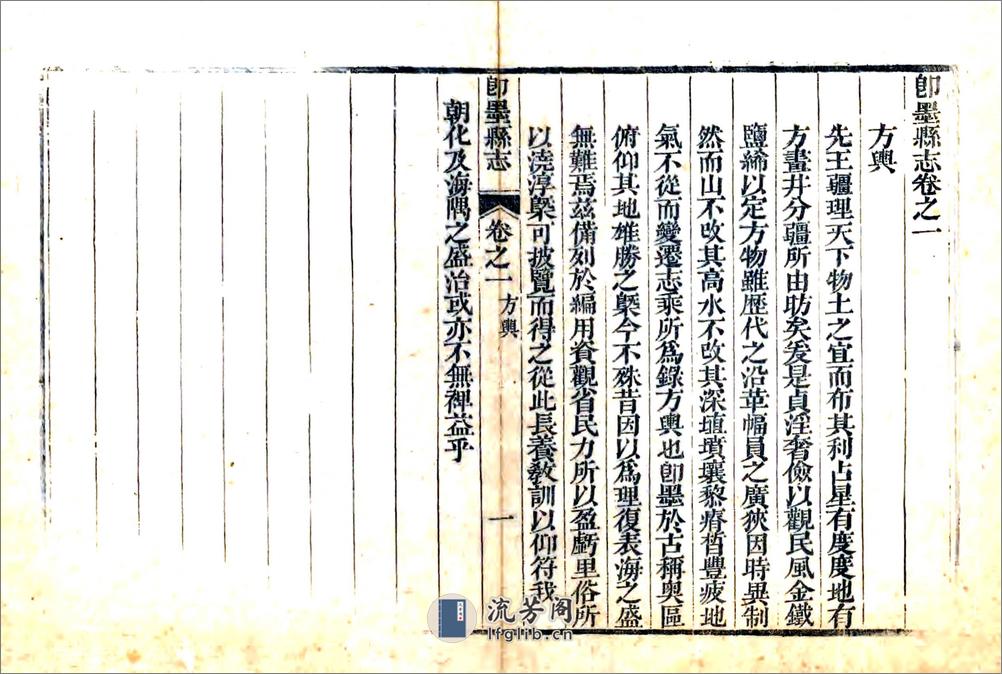 卽墨縣志卷之一
方輿
先王疆理天下物土之宜而布其利占星有度度地有
方畫井分疆所由昉矣爰是貞淫奢儉以觀民風金鐵
鹽絺以定方物雖歷代之沿革幅員之廣狹因時異制
然而山不改其高水不改其深埴墳壤黎瘠晳豐疲地
氣不從而變遷志乘所爲錄方輿也卽墨於古稱奧區
俯仰其地雄勝之槩今不殊昔因以爲理復表海之盛
無難焉茲備列於編用資觀省民力所以盈虧里俗所
以澆淳槩可披覽而得之從此長養敎訓以仰符我
卽墨縣志 卷之一 方輿 一
朝化及海隅之盛治或亦不無裨益乎
流芳阁
lfglib.cn